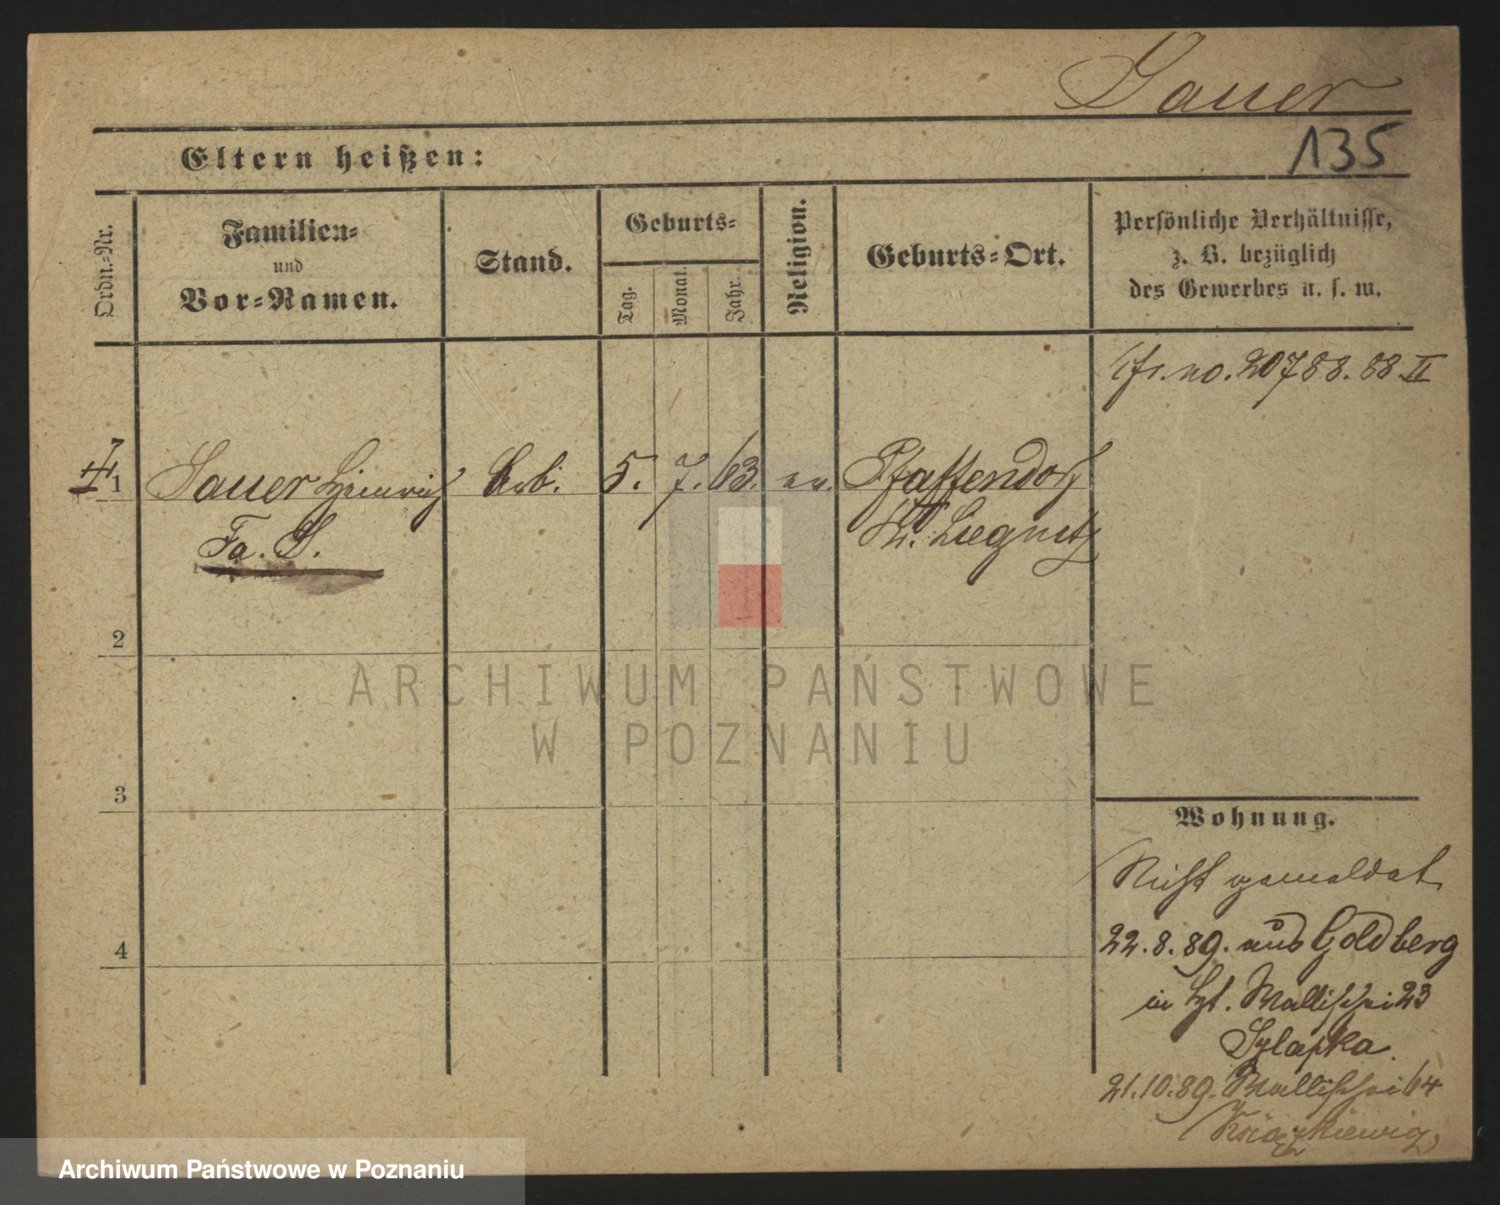 Sauer
135
Eltern heißen:
Ordn.-Nr.
Familien-
und
Vor-Namen.
Stand.
Geburts-
Tag.
Monat.
Jahr.
Religion.
Geburts-Ort.
Persönliche Verhältnisse,
z. B. bezüglich
des Gewerbes u. s. w.
no. 20788.88 II
1 Sauer Heinrich Arb. 5. 7. 63. ev. Pfaffendorf
Fa. S. Kr. Liegnitz
2
3
4
Wohnung.
Nicht gemeldet
22.8.89. aus Goldberg
in Wallischei 23
Szlapka.
21.10.89. Wallischei 64
Książkiewicz
ARCHIWUM PAŃSTWOWE
W POZNANIU
Archiwum Państwowe w Poznaniu